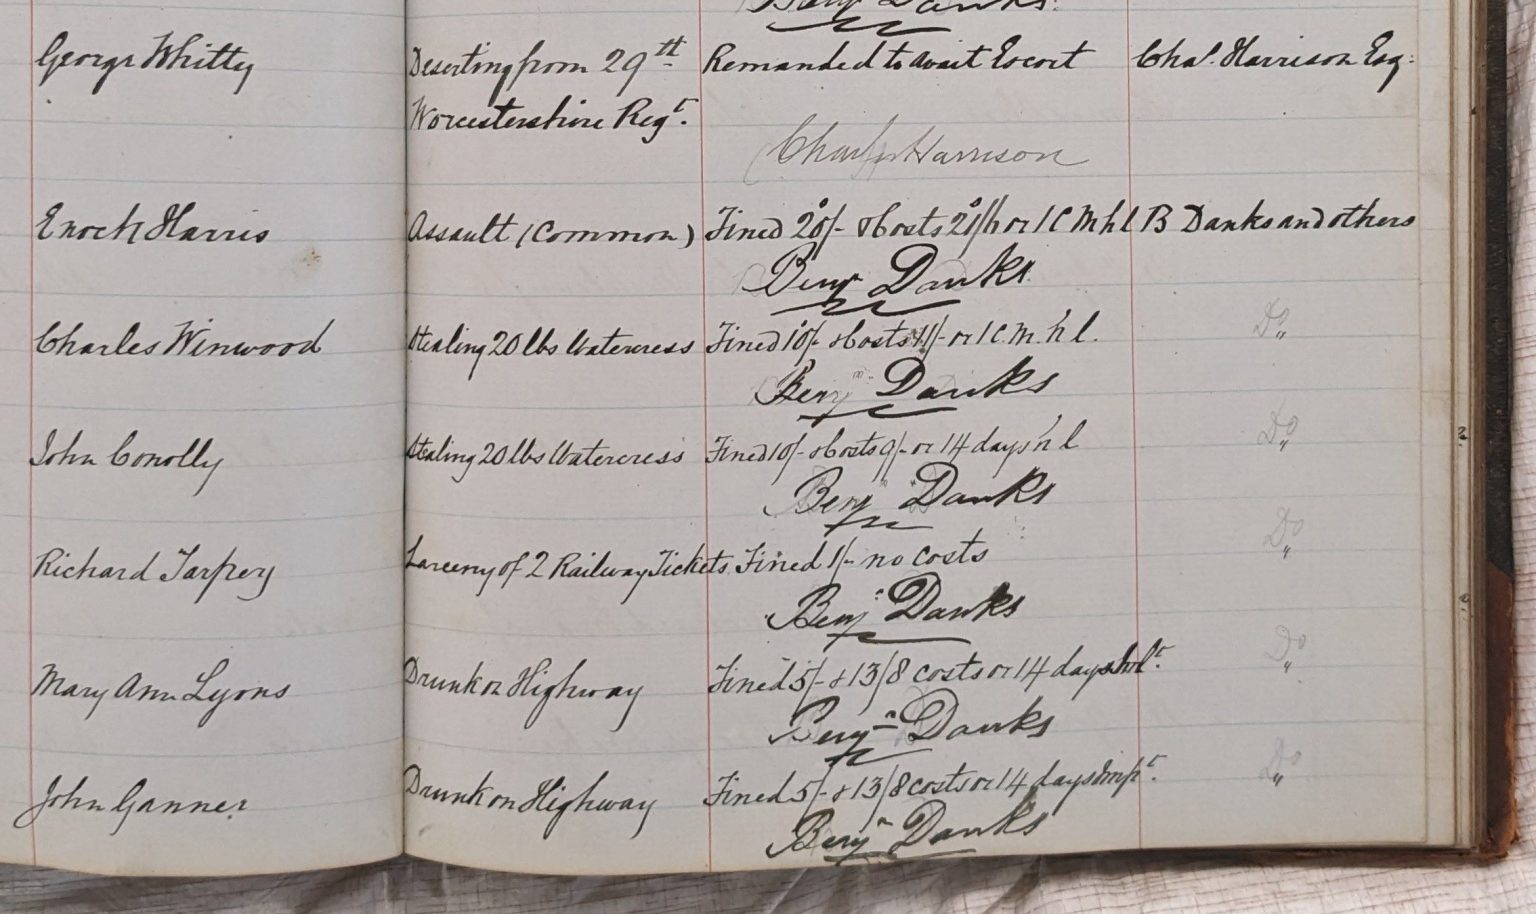 Benj Danks.
George Whitty Deserting from 29th Remanded to await Escort Chas. Harrison Esq:
Worcestershire Regt.
Charles Harrison
Enoch Harris Assault (Common) Fined 20/- & Costs 20/6 or 1 C M h l B Danks and others
Benjn Danks
Charles Winwood Stealing 20 lbs Watercress Fined 10/- & Costs 11/- or 1 C. m. h l. Do
Benjn Danks
John Conolly Stealing 20 lbs Watercress Fined 10/- & Costs 9/- or 14 days h l Do
Benjn Danks
Richard Tarpey Larceny of 2 Railway Tickets Fined 1/- no costs Do
Benjn Danks
Mary Ann Lyons Drunk on Highway Fined 5/- & 13/8 costs or 14 days Do
Benjn Danks
John Ganner Drunk on Highway Fined 5/- & 13/8 costs or 14 days Impt. Do
Benjn Danks